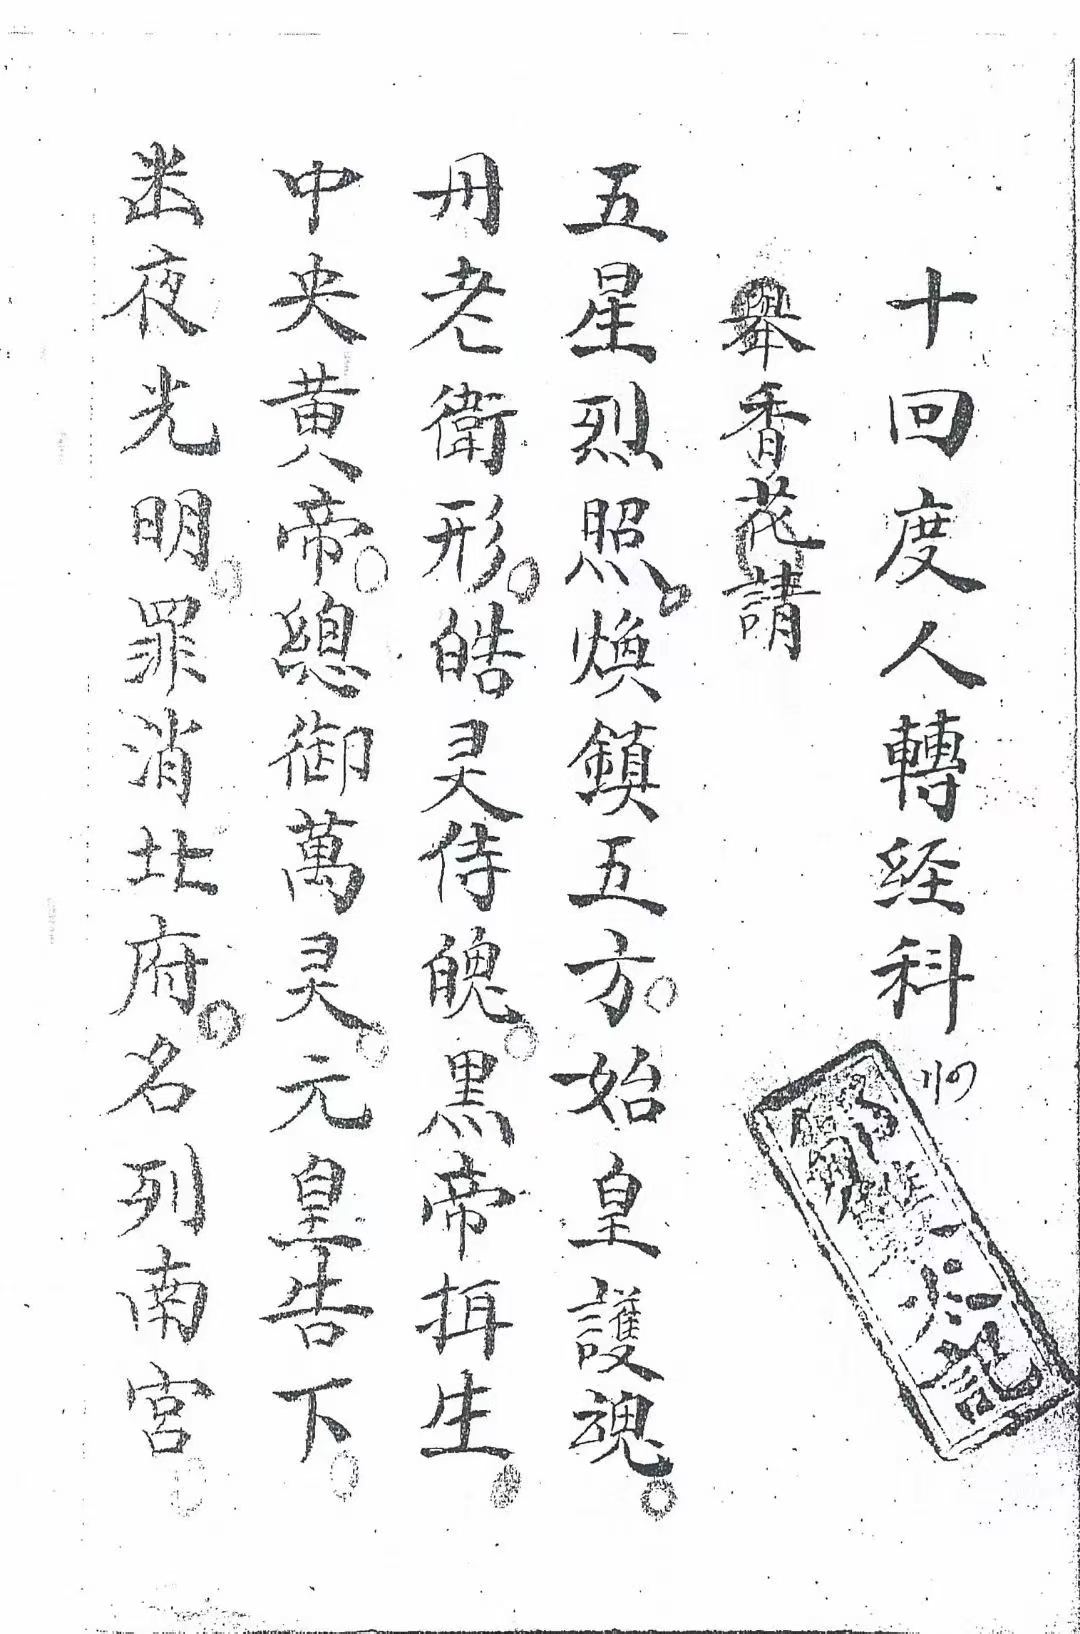 十回度人轉经科
舉香花請
五星烈照。煥鎮五方。始皇護魂。
丹老衛形。皓灵侍魄。黑帝揖生。
中央黄帝。總御萬灵。元皇告下。
幽夜光明。罪消北府。名列南宮。
記